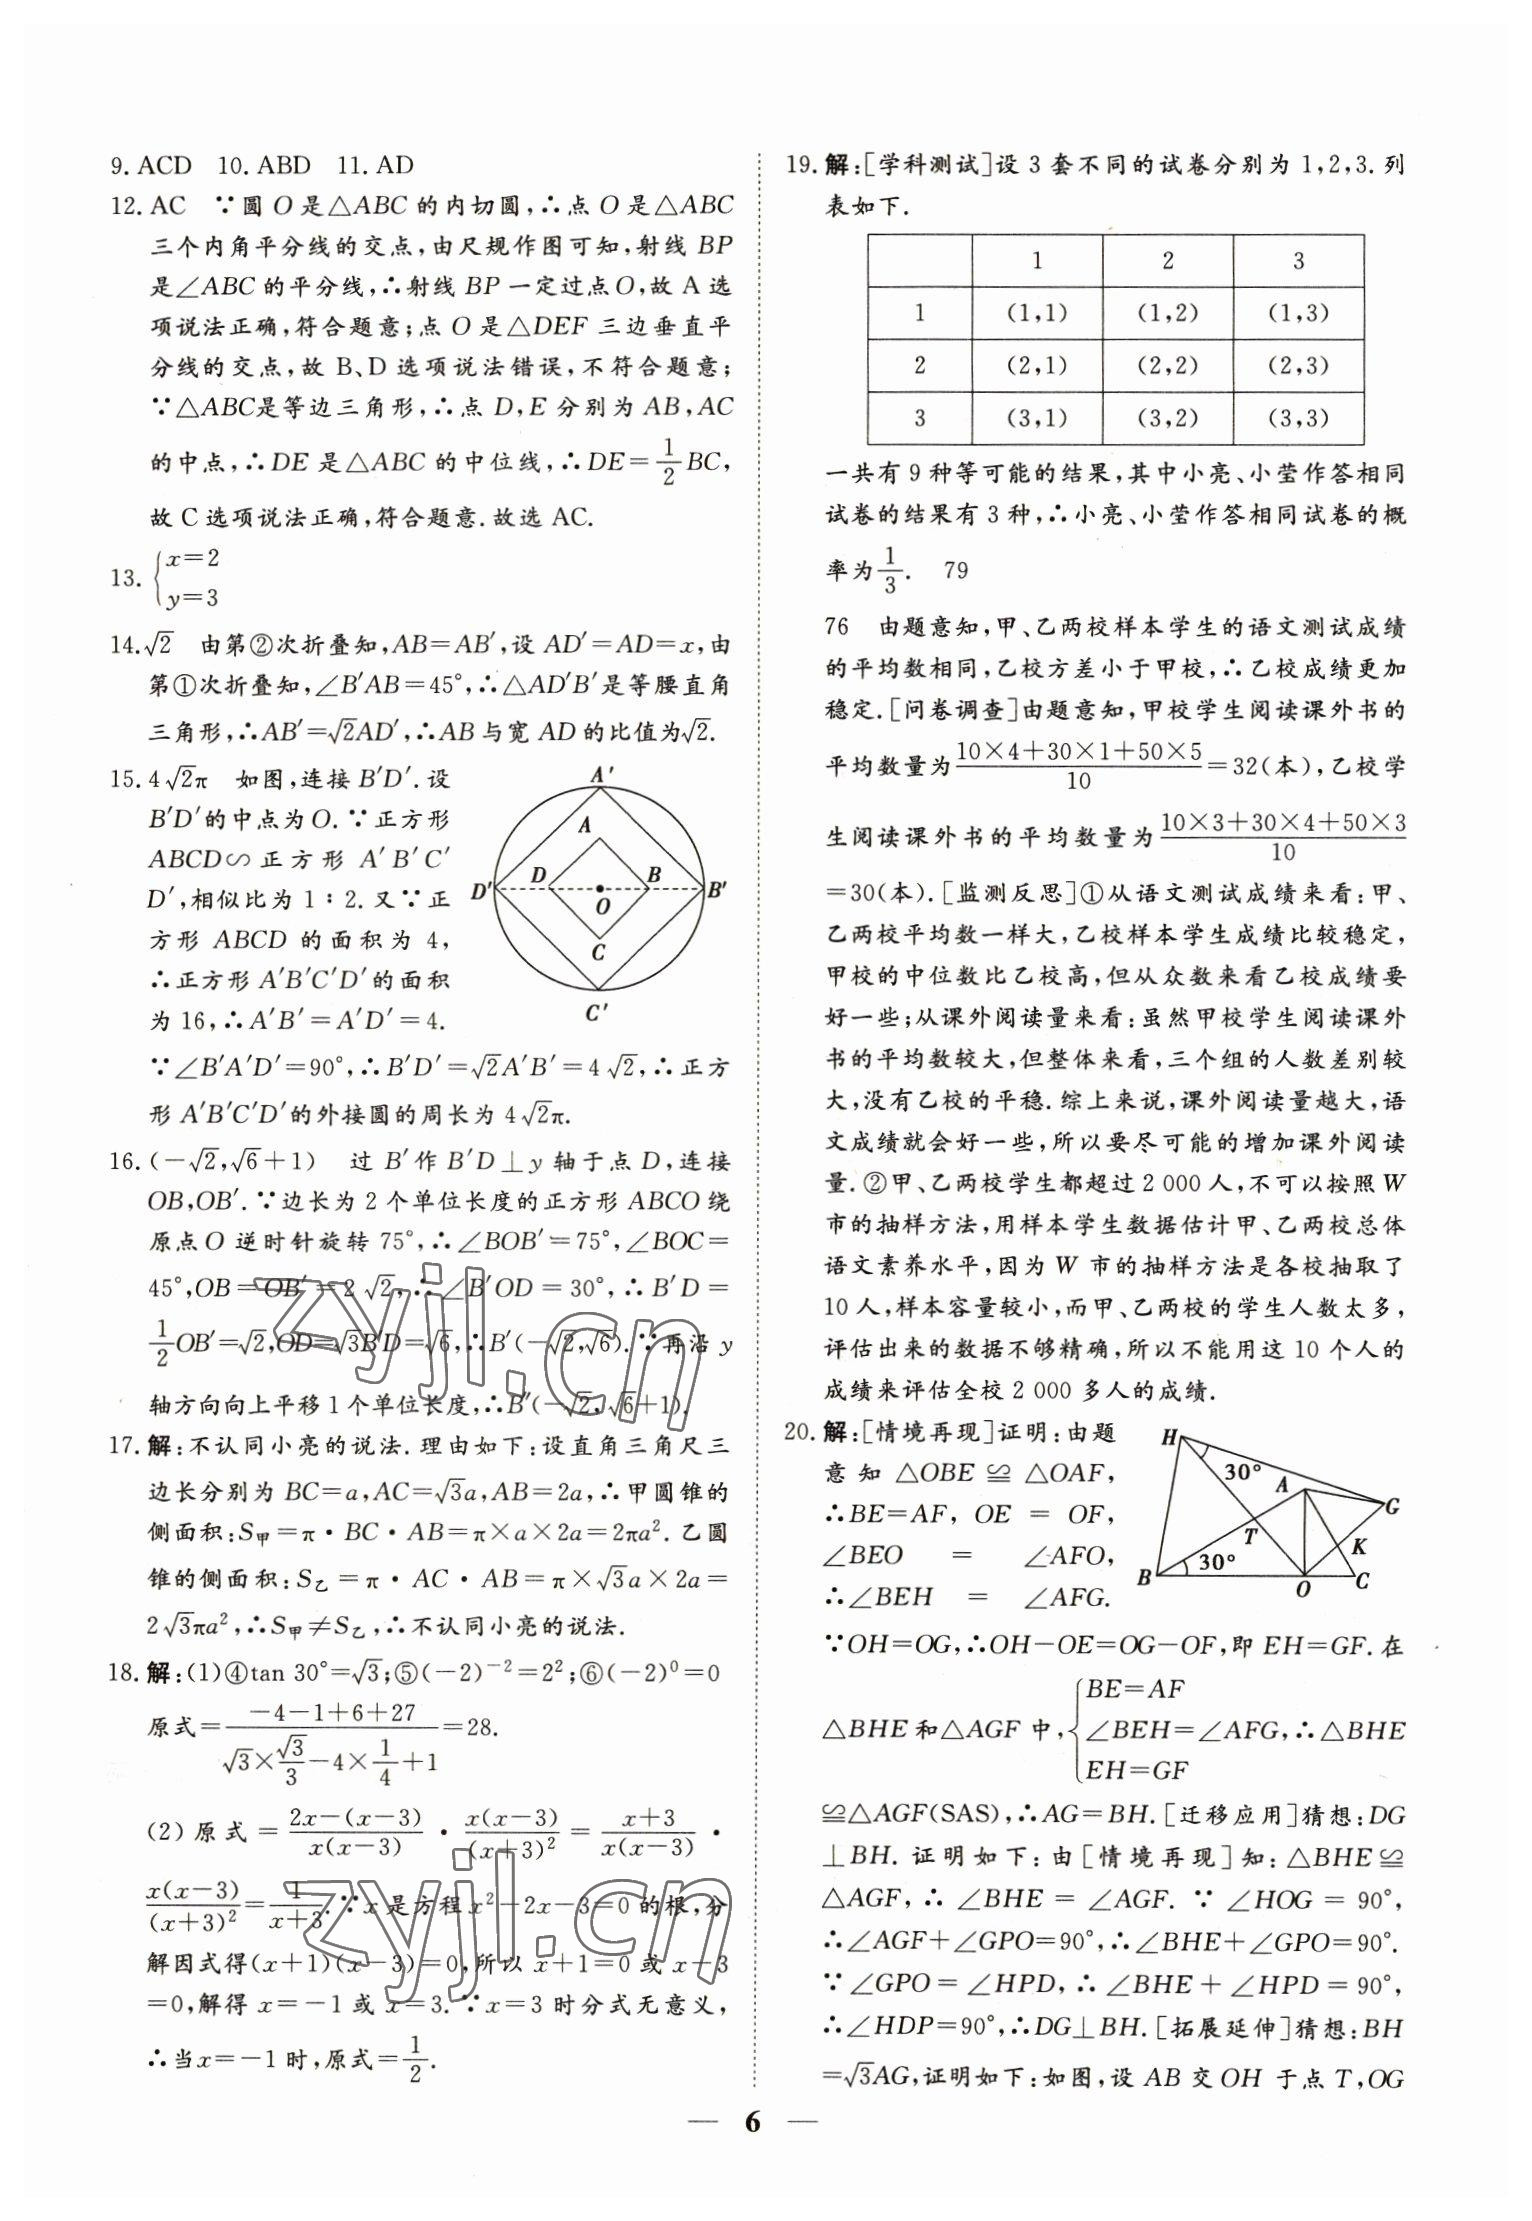 9. ACD　10. ABD　11. AD
12. AC　∵圆 O 是△ABC 的内切圆,∴点 O 是△ABC
三个内角平分线的交点,由尺规作图可知,射线 BP
是∠ABC 的平分线,∴射线 BP 一定过点O,故 A 选
项说法正确,符合题意;点 O 是△DEF 三边垂直平
分线的交点,故 B、D 选项说法错误,不符合题意;
∵△ABC是等边三角形,∴点 D,E 分别为 AB,AC
的中点,∴DE 是△ABC 的中位线,∴DE=1/2 BC,
故 C 选项说法正确,符合题意.故选 AC.
13. {x=2
y=3
14. √2　由第②次折叠知,AB=AB′,设 AD′=AD=x,由
第①次折叠知,∠B′AB=45°,∴△AD′B′是等腰直角
三角形,∴AB′=√2AD′,∴AB与宽 AD的比值为√2.
15. 4√2π　如图,连接 B′D′.设
B′D′的中点为O.∵正方形
ABCD∽正方形 A′B′C′
D′,相似比为 1∶2.又∵正
方形 ABCD 的面积为 4,
∴正方形 A′B′C′D′的面积
为 16,∴A′B′=A′D′=4.
A′
A
D′ D B B′
O
C
C′
∵∠B′A′D′=90°,∴B′D′=√2A′B′=4√2,∴正方
形 A′B′C′D′的外接圆的周长为 4√2π.
16. (−√2,√6+1)　过 B′作 B′D⊥y 轴于点 D,连接
OB,OB′.∵边长为 2 个单位长度的正方形 ABCO 绕
原点 O 逆时针旋转 75°,∴∠BOB′=75°,∠BOC=
45°,OB=OB′=2√2,∴∠B′OD=30°,∴B′D=
1/2 OB′=√2,OD=√3B′D=√6,∴B′(−√2,√6).∵再沿 y
轴方向向上平移1个单位长度,∴B″(−√2,√6+1).
17. 解:不认同小亮的说法.理由如下:设直角三角尺三
边长分别为 BC=a,AC=√3a,AB=2a,∴甲圆锥的
侧面积:S甲=π·BC·AB=π×a×2a=2πa².乙圆
锥的侧面积:S乙=π·AC·AB=π×√3a×2a=
2√3πa²,∴S甲≠S乙,∴不认同小亮的说法.
18. 解:(1)④tan 30°=√3;⑤(−2)⁻²=2²;⑥(−2)⁰=0
原式=(−4−1+6+27)/(√3×√3/3−4×1/4+1)=28.
(2)原式=(2x−(x−3))/(x(x−3))·(x(x−3))/((x+3)²)=(x+3)/(x(x−3))·
(x(x−3))/((x+3)²)=1/(x+3).∵x 是方程 x²−2x−3=0 的根,分
解因式得(x+1)(x−3)=0,所以 x+1=0 或 x−3
=0,解得 x=−1 或 x=3.∵x=3 时分式无意义,
∴当x=−1时,原式=1/2.
19. 解:[学科测试]设 3 套不同的试卷分别为 1,2,3.列
表如下.
1 2 3
1 (1,1) (1,2) (1,3)
2 (2,1) (2,2) (2,3)
3 (3,1) (3,2) (3,3)
一共有 9 种等可能的结果,其中小亮、小莹作答相同
试卷的结果有 3 种,∴小亮、小莹作答相同试卷的概
率为1/3.　79
76　由题意知,甲、乙两校样本学生的语文测试成绩
的平均数相同,乙校方差小于甲校,∴乙校成绩更加
稳定.[问卷调查]由题意知,甲校学生阅读课外书的
平均数量为(10×4+30×1+50×5)/10=32(本),乙校学
生阅读课外书的平均数量为(10×3+30×4+50×3)/10
=30(本).[监测反思]①从语文测试成绩来看:甲、
乙两校平均数一样大,乙校样本学生成绩比较稳定,
甲校的中位数比乙校高,但从众数来看乙校成绩要
好一些;从课外阅读量来看:虽然甲校学生阅读课外
书的平均数较大,但整体来看,三个组的人数差别较
大,没有乙校的平稳.综上来说,课外阅读量越大,语
文成绩就会好一些,所以要尽可能的增加课外阅读
量.②甲、乙两校学生都超过 2 000 人,不可以按照 W
市的抽样方法,用样本学生数据估计甲、乙两校总体
语文素养水平,因为 W 市的抽样方法是各校抽取了
10 人,样本容量较小,而甲、乙两校的学生人数太多,
评估出来的数据不够精确,所以不能用这 10 个人的
成绩来评估全校 2 000 多人的成绩.
20. 解:[情境再现]证明:由题
意知 △OBE ≌ △OAF,
∴BE=AF, OE = OF,
∠BEO = ∠AFO,
∴∠BEH = ∠AFG.
H
30°
A
G
T
K
B 30° O C
∵OH=OG,∴OH−OE=OG−OF,即 EH=GF.在
△BHE和△AGF 中,{BE=AF
∠BEH=∠AFG,∴△BHE
EH=GF
≌△AGF(SAS),∴AG=BH.[迁移应用]猜想:DG
⊥BH.证明如下:由[情境再现]知:△BHE≌
△AGF,∴ ∠BHE = ∠AGF. ∵ ∠HOG = 90°,
∴∠AGF+∠GPO=90°,∴∠BHE+∠GPO=90°.
∵ ∠GPO = ∠HPD,∴ ∠BHE + ∠HPD = 90°,
∴∠HDP=90°,∴DG⊥BH.[拓展延伸]猜想:BH
=√3AG,证明如下:如图,设 AB 交 OH 于点 T,OG
— 6 —
zyjl.cn
zyjl.cn